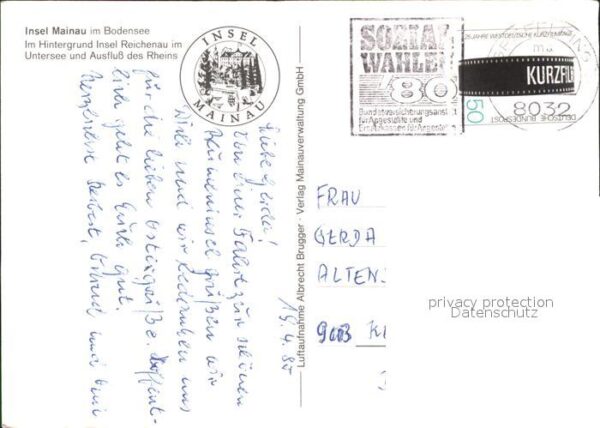 Insel Mainau im Bodensee
Im Hintergrund Insel Reichenau im
Untersee und Ausfluß des Rheins
INSEL
MAINAU
SOZIAL
WAHLEN
86
Bundesversicherungsanst
für Angestellte und
Ersatzkassen für Angestellte
25 JAHRE WESTDEUTSCHE KURZFILMTAGE
KURZFIL
50
DEUTSCHE BUNDESPOST
8032
Luftaufnahme Albrecht Brugger · Verlag Mainauverwaltung GmbH
19.4.85
Liebe Gerda!
Von einer Fahrt zur schönen
Blumeninsel grüßen wir
Dich und wir bedanken uns
für die lieben Ostergrüße. Hoffent-
lich geht es Euch gut.
Herzlichst
FRAU
GERDA
ALTEN
privacy protection
Datenschutz